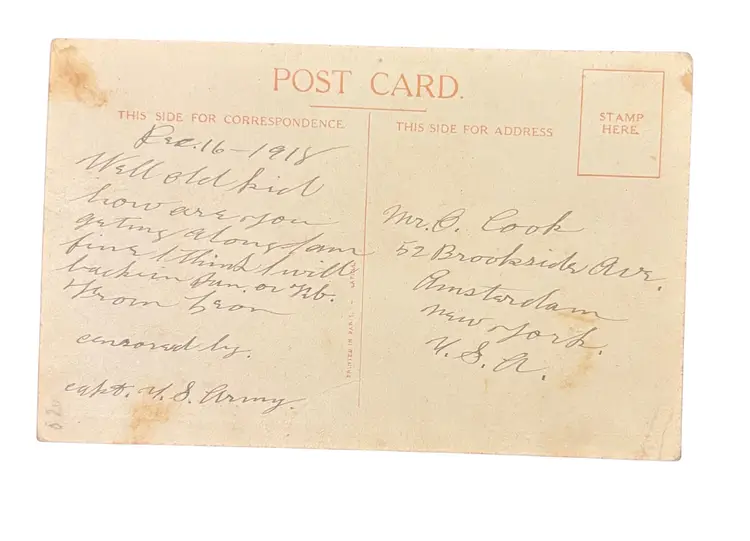 POST CARD.
THIS SIDE FOR CORRESPONDENCE
THIS SIDE FOR ADDRESS
STAMP
HERE.
Dec. 16 - 1918
Well old kid
how are you
geting along I am
fine I think I will
back in Jan. or Feb.
From Leon
censored by.
capt. U. S. Army.
Mr. C. Cook
52 Brookside Ave.
Amsterdam
New York.
U. S. A.
PRINTED IN PARIS